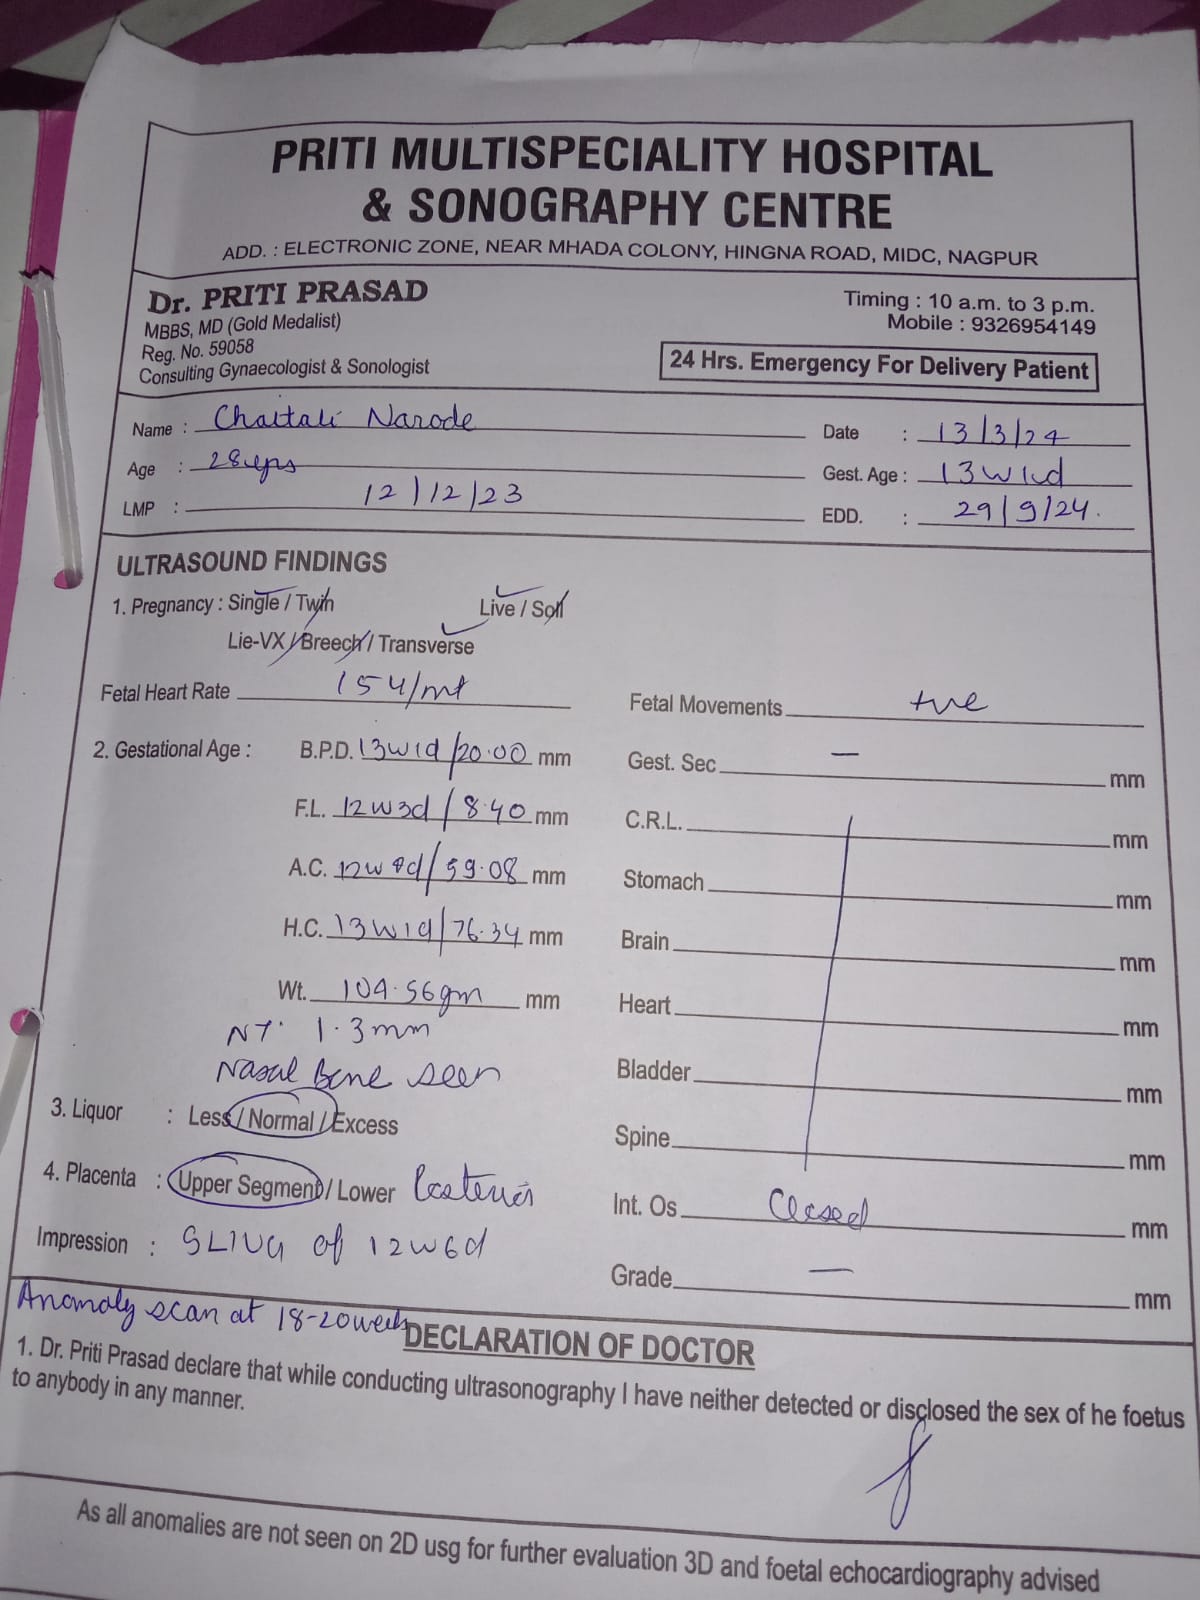 PRITI MULTISPECIALITY HOSPITAL
& SONOGRAPHY CENTRE
ADD. : ELECTRONIC ZONE, NEAR MHADA COLONY, HINGNA ROAD, MIDC, NAGPUR
Dr. PRITI PRASAD
MBBS, MD (Gold Medalist)
Reg. No. 59058
Consulting Gynaecologist & Sonologist
Timing : 10 a.m. to 3 p.m.
Mobile : 9326954149
24 Hrs. Emergency For Delivery Patient
Name : Chaitali Narode
Date : 13/3/24
Age : 28yrs
Gest. Age : 13w1d
LMP : 12/12/23
EDD. : 29/9/24.
ULTRASOUND FINDINGS
1. Pregnancy : Single / Twin Live / Soll
Lie-VX / Breech / Transverse
Fetal Heart Rate 154/mt
Fetal Movements +ve
2. Gestational Age : B.P.D. 13w1d/20.00 mm
Gest. Sec — mm
F.L. 12w3d/8.40 mm
C.R.L. mm
A.C. /59.08 mm
Stomach mm
H.C. 13w1d/76.34 mm
Brain mm
Wt. 104.56gm mm
Heart mm
NT. 1.3mm
Nasal Bone seen
Bladder mm
3. Liquor : Less / Normal / Excess
Spine mm
4. Placenta : Upper Segment / Lower Posterior
Int. Os Closed mm
Impression : SLIUG of 12w6d
Grade — mm
Anomaly scan at 18-20weeks
DECLARATION OF DOCTOR
1. Dr. Priti Prasad declare that while conducting ultrasonography I have neither detected or disclosed the sex of he foetus
to anybody in any manner.
As all anomalies are not seen on 2D usg for further evaluation 3D and foetal echocardiography advised